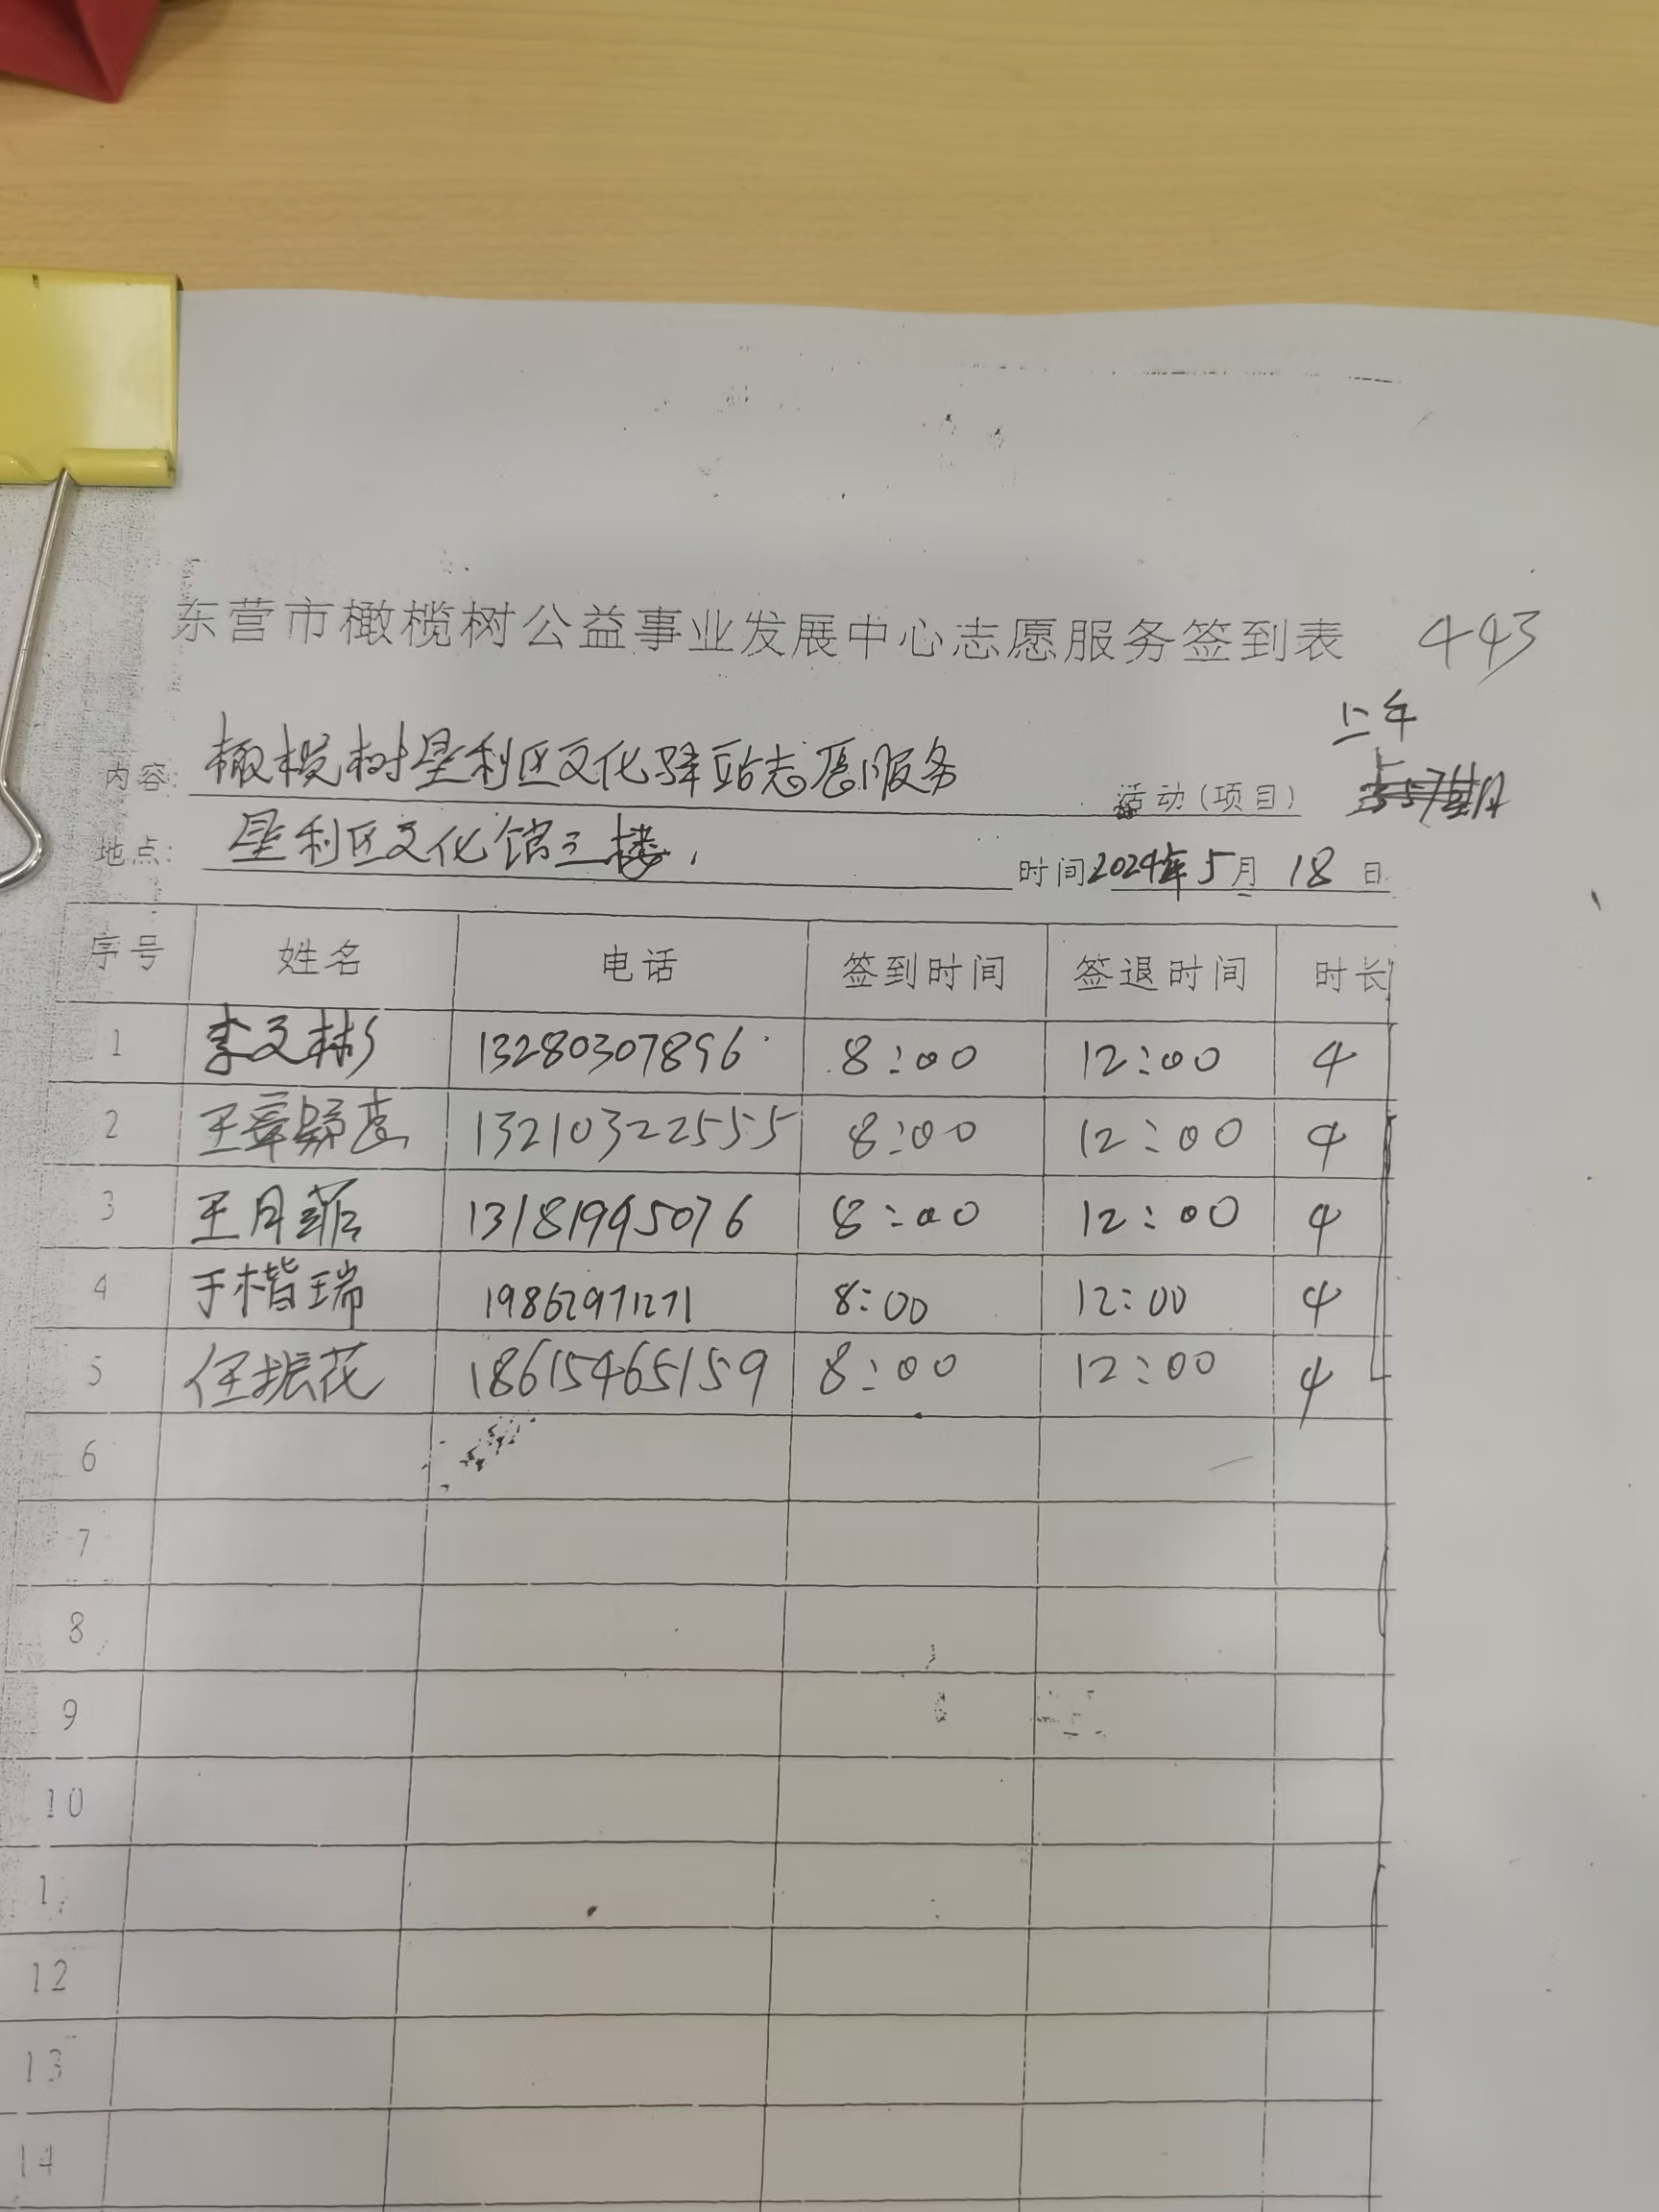 东营市橄榄树公益事业发展中心志愿服务签到表 443
上午
内容: 橄榄树垦利区文化驿站志愿服务 活动(项目)
地点: 垦利区文化馆三楼. 时间2024年5月18日
序号 姓名 电话 签到时间 签退时间 时长
1 李文彬 13280307896 8:00 12:00 4
2 13210322555 8:00 12:00 4
3 王月菲 13181995076 8:00 12:00 4
4 于楷瑞 19862971271 8:00 12:00 4
5 任振花 18615465159 8:00 12:00 4
6
7
8
9
10
12
13
14